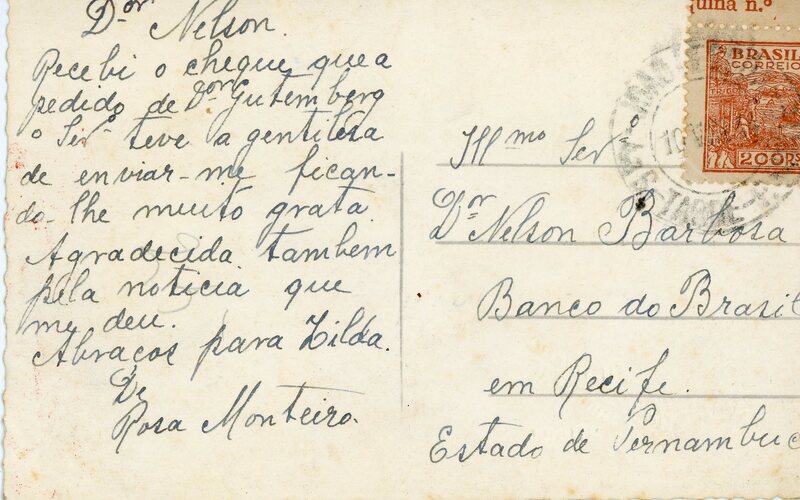 Dor Nelson.
Recebi o cheque que a
pedido de Dor Gutemberg
o Ser teve a gentilesa
de enviar-me fican-
do-lhe muito grata.
Agradecida tambem
pela noticia que
me deu.
Abraços para Zilda.
De
Rosa Monteiro.
quina n.º
BRASIL
CORREIO
200RS
Illmo Ser
Dr Nelson Barbosa
Banco do Brasil
em Recife.
Estado de Pernambuc